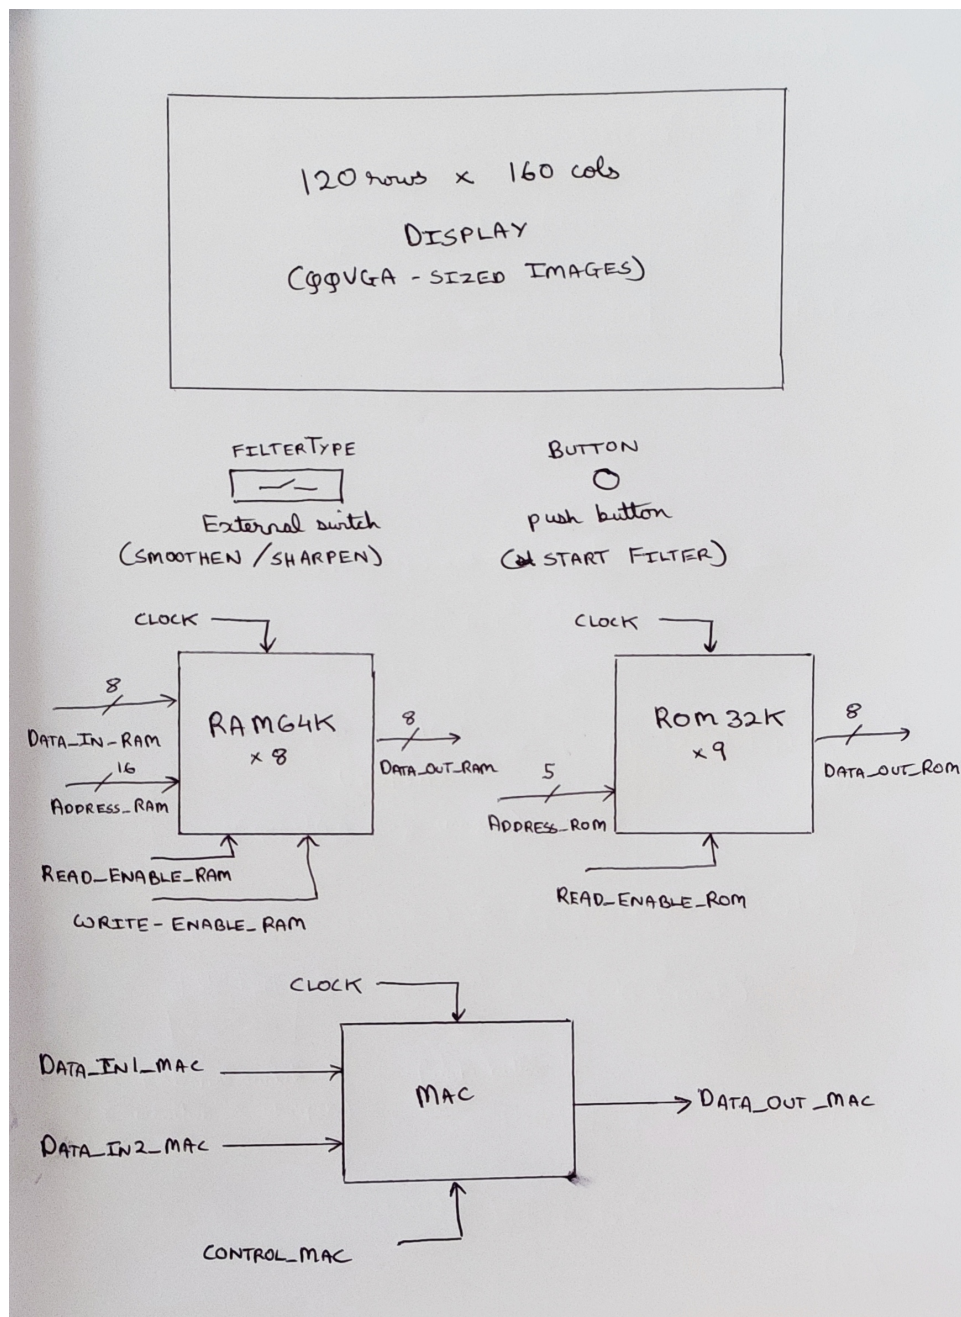 120 rows x 160 cols
DISPLAY
(QQVGA - SIZED IMAGES)
FILTERTYPE
External switch
(SMOOTHEN / SHARPEN)
BUTTON
push button
( START FILTER)
CLOCK
8
DATA_IN_RAM
16
ADDRESS_RAM
RAM64K
x 8
8
DATA_OUT_RAM
READ_ENABLE_RAM
WRITE-ENABLE_RAM
CLOCK
5
ADDRESS_ROM
ROM 32K
x 9
8
DATA_OUT_ROM
READ_ENABLE_ROM
CLOCK
DATA_IN1_MAC
DATA_IN2_MAC
MAC
DATA_OUT_MAC
CONTROL_MAC